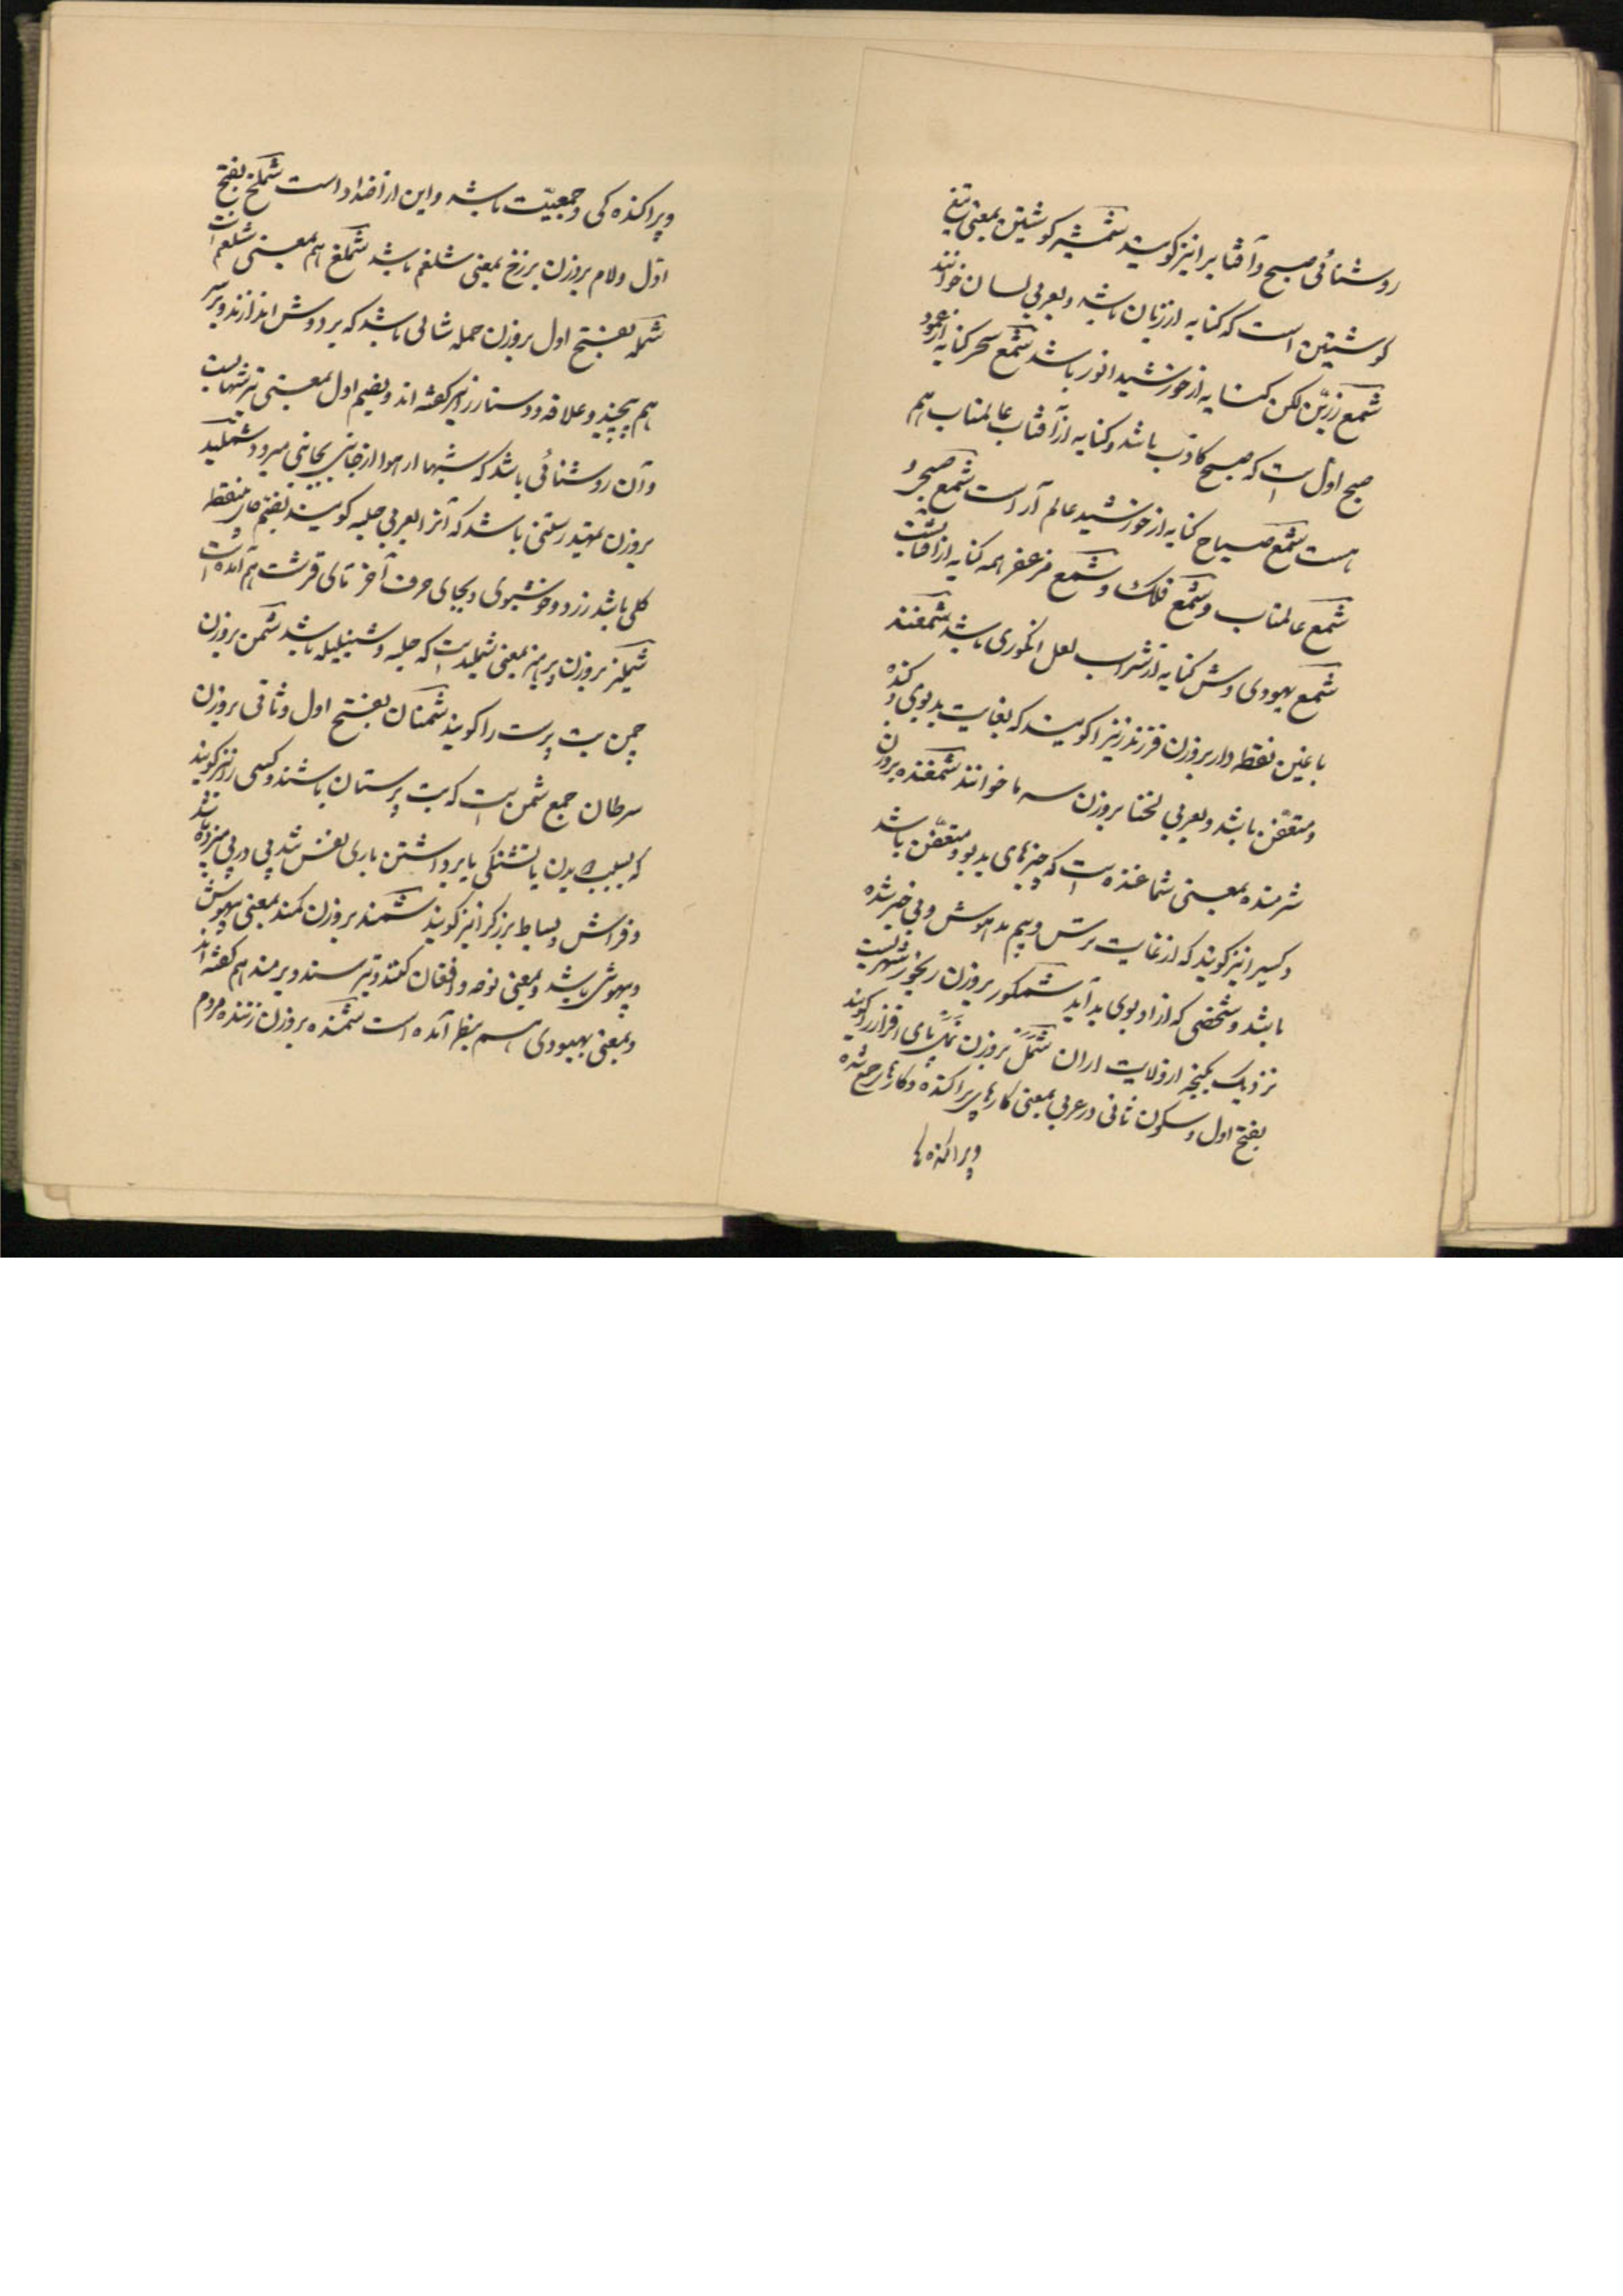 روشنائی صبح و آفتاب را نیز گویند شمشیر گوشتین بمعنی تیغ
گوشتین است که کنایه از زبان باشد و بعربی لسان خوانند
شمع زرین لگن کنایه از خورشید انور باشد شمع سحر کنایه از عمود
صبح اول است که صبح کاذب باشد و کنایه از آفتاب عالمتاب هم
هست شمع صباح کنایه از خورشید عالم آراست شمع صبح و
شمع عالمتاب و شمع فلک و شمع مزعفر همه کنایه از آفتابست
شمع یهودی وش کنایه از شراب لعل انگوری باشد شمغند
با غین نقطه دار بروزن فرزند زنیرا گویند که بغایت بدبوی و گنده
و متعفن باشد و بعربی لخنا بروزن سه ما خوانند شمغنده بروزن
شرمنده بمعنی شماغنده است که چیزهای بدبو و متعفن باشد
و کسیرا نیز گویند که از غایت ترس و بیم مدهوش و بی خبر شده
باشد و شخصی که از او بوی بد آید شمکور بروزن رنجور شهریست
نزدیک بگنجه از ولایت اران شمل بروزن نمک پای افزار را گویند
بفتح اول و سکون ثانی در عربی بمعنی کارهای پراکنده و کارهای جمع شده
و پراکنده‌ها
و پراکنده کی و جمعیّت باشد و این از اضداد است شملخ بفتح
اوّل و لام بروزن برزخ بمعنی شلغم باشد شملغ هم بمعنی شلغم است
شمله بفتح اول بروزن حمله شالی باشد که بر دوش اندازند و بر سر
هم پیچند و علاقه و دستار را نیز گفته اند و بضم اول بمعنی تیر شهابست
و آن روشنائی باشد که شبها در هوا از جانبی بجانبی میرود شملید
بروزن تمهید رستنی باشد که آنرا بعربی حلبه گویند بفتح خای نقطه
گلی باشد زرد و خوشبوی و بجای حرف آخر تای قرشت هم آمده است
شملیز بروزن پرهیز بمعنی شملید است که حلبه و شنبلیله باشد شمن بروزن
چمن بت پرست را گویند شمنان بفتح اول و ثانی بروزن
سرطان جمع شمن است که بت پرستان باشند و کسی را نیز گویند
که بسبب دویدن یا تشنگی یا برداشتن باری نفس شد پی در پی میزده باشد
و فراش و بساط بزرگ را نیز گویند شمند بروزن کمند بمعنی بیهوش
و بیهوشی باشد و بمعنی نوحه و افغان کنند و تیر سند و برمند هم گفته اند
و بمعنی بهبودی هم بنظر آمده است شمنده بروزن زننده مردم